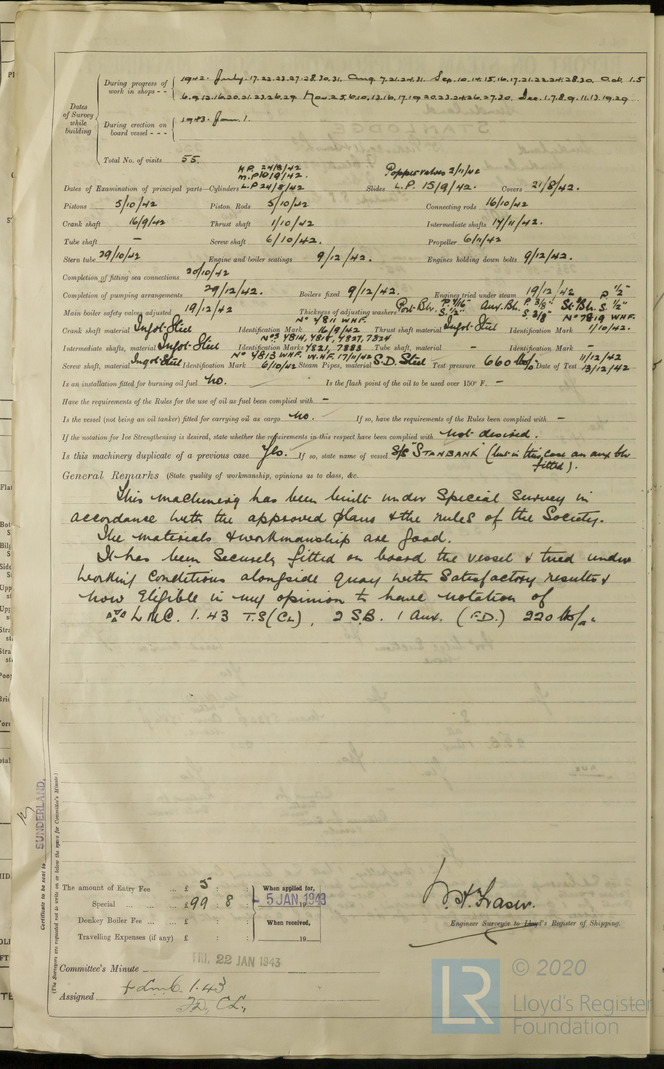 Dates of Survey while building
During progress of work in shops - - 1942. July. 17. 22. 23. 27. 28. 30. 31. Aug. 7. 21. 24. 31. Sep. 10. 14. 15. 16. 17. 21. 22. 24. 28. 30. Oct. 1. 5
6. 9. 12. 16. 20. 21. 23. 26. 29. Nov. 2. 5. 6. 10. 13. 16. 17. 19. 20. 23. 24. 26. 27. 30. Dec. 1. 7. 8. 9. 11. 13. 19. 29.
During erection on board vessel - - - 1943. Jan. 1.
Total No. of visits 55.
H.P. 24/8/42
M.P. 10/9/42. Poppet valves 2/11/42
Dates of Examination of principal parts—Cylinders L.P 24/8/42 Slides L.P. 15/9/42. Covers 21/8/42.
Pistons 5/10/42 Piston Rods 5/10/42 Connecting rods 16/10/42
Crank shaft 16/9/42 Thrust shaft 1/10/42 Intermediate shafts 14/11/42.
Tube shaft – Screw shaft 6/10/42. Propeller 6/11/42
Stern tube 29/10/42 Engine and boiler seatings 9/12/42. Engines holding down bolts 9/12/42.
Completion of fitting sea connections 20/10/42
Completion of pumping arrangements 29/12/42. Boilers fixed 9/12/42. Engines tried under steam 19/12/42
Main boiler safety valves adjusted 19/12/42 Thickness of adjusting washers Port Blr. P 7/16" S. 1/2" Aux. Blr. P 3/8" S. 3/8" St Blr. P 1/2" S. 1/2"
Crank shaft material Ingot Steel Identification Mark No 4811 WHF. 16/9/42 Thrust shaft material Ingot Steel Identification Mark No 7819 WHF. 1/10/42.
Intermediate shafts, material Ingot Steel Identification Marks Nos 4814, 4818, 4827, 7824 4821, 7888 Tube shaft, material – Identification Mark –
Screw shaft, material Ingot Steel Identification Mark No 4813 WHF. 6/10/42 W.H.F. 17/11/42 Steam Pipes, material S.D. Steel Test pressure 660 lbs/□" Date of Test 11/12/42 13/12/42
Is an installation fitted for burning oil fuel No. Is the flash point of the oil to be used over 150° F. –
Have the requirements of the Rules for the use of oil as fuel been complied with –
Is the vessel (not being an oil tanker) fitted for carrying oil as cargo No. If so, have the requirements of the Rules been complied with –
If the notation for Ice Strengthening is desired, state whether the requirements in this respect have been complied with Not desired.
Is this machinery duplicate of a previous case Yes. If so, state name of vessel S/S "STANBANK" (but in this case an aux blr
fitted).
General Remarks (State quality of workmanship, opinions as to class, &c.
This machinery has been built under Special Survey in
accordance with the approved plans & the rules of the Society.
The materials & workmanship are good.
It has been securely fitted on board the vessel & tried under
working conditions alongside quay with satisfactory results &
now eligible in my opinion to have notation of
L.M.C. 1. 43 T.S (CL), 2 S.B. 1 Aux. (F.D.) 220 lbs/□"
Certificate to be sent to SUNDERLAND.
(The Surveyors are requested not to write on or below the space for Committee's Minute.)
The amount of Entry Fee ... £ 5 : :
Special ... £ 99 : 8 :
Donkey Boiler Fee ... £ : :
Travelling Expenses (if any) £ : :
When applied for,
- 5 JAN 1943
When received,
19
W. H. Fraser.
Engineer Surveyor to Lloyd's Register of Shipping.
Committee's Minute FRI. 22 JAN 1943
Assigned + Lmc 1.43
FD, CL,
LR
© 2020
Lloyd's Register
Foundation